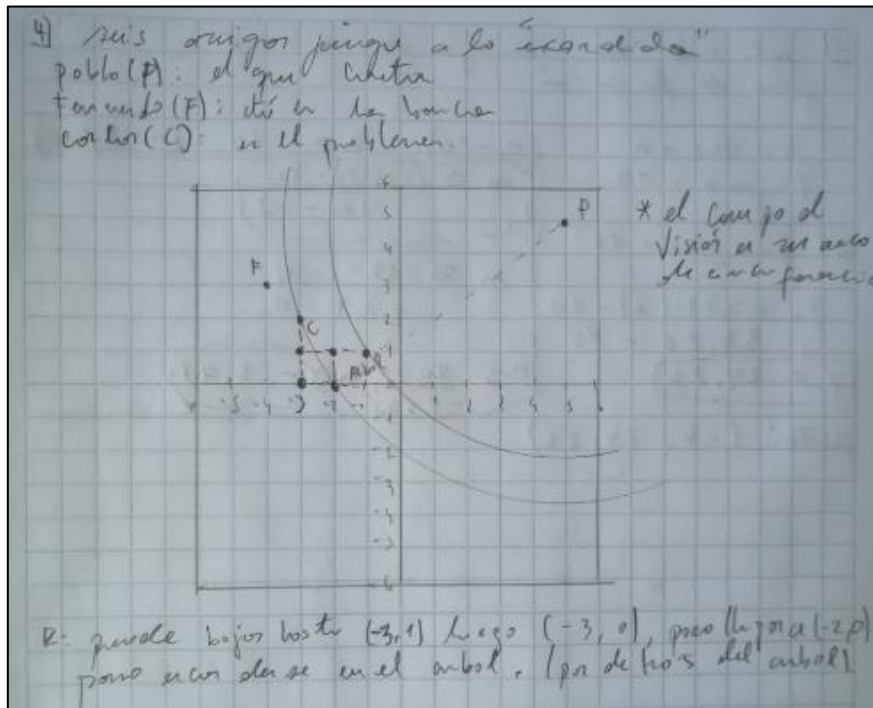 4) seis amigos juega a la "escondida"
pablo (P): el que cuenta
Fernando (F): está en la banca
Carlos (C): es el problema.
6
5 P * el campo d
4 visión es un arco
F 3 de circunferencia
2 C
1
-5 -4 -3 -2 1 2 3 4 5 6
-1
-2
-3
-4
-5
-6
R: puede bajar hasta (-3, 1) luego (-3, 0), para llegar a (-2,0)
para esconderse en el arbol. (por detrás del arbol)